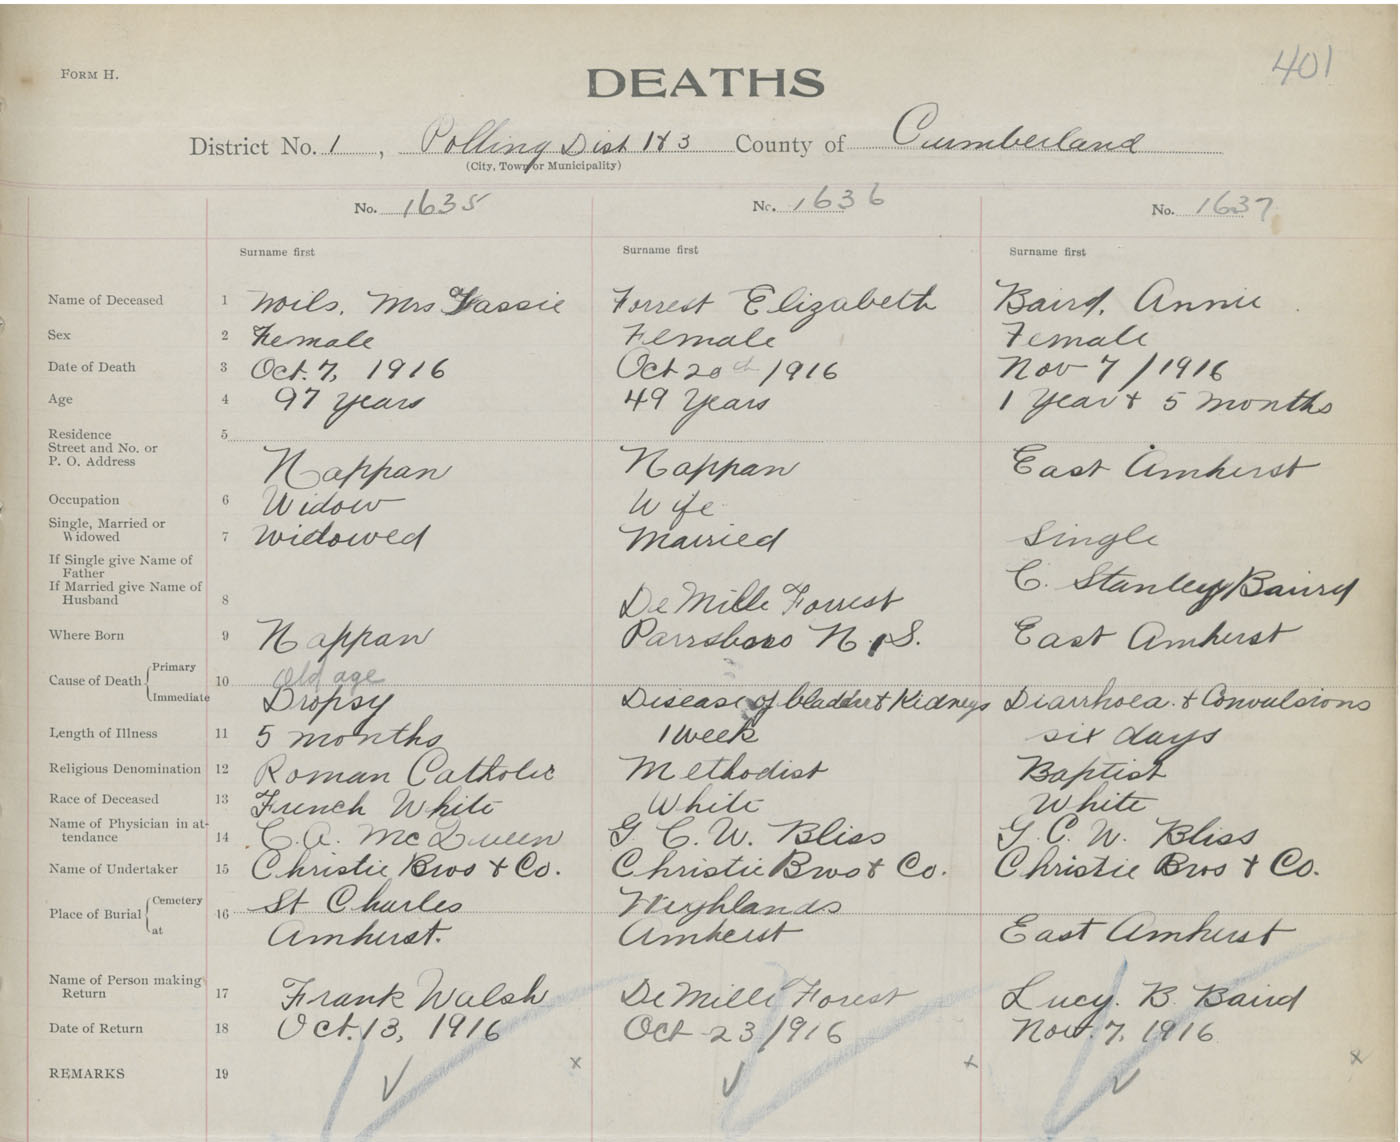 401
FORM H.
DEATHS
District No. 1, Polling Dist 1 & 3 County of Cumberland
(City, Town or Municipality)
No. 1635 No. 1636 No. 1637
Surname first Surname first Surname first
Name of Deceased 1 Mrs Forrest Elizabeth Baird, Annie
Sex 2 Female Female Female
Date of Death 3 Oct. 7, 1916 Oct 20th/1916 Nov 7/1916
Age 4 97 years 49 Years 1 Year & 5 months
Residence 5
Street and No. or
P. O. Address Nappan Nappan East Amherst
Occupation 6 Widow Wife
Single, Married or
Widowed 7 Widowed Married Single
If Single give Name of
Father C. Stanley Baird
If Married give Name of
Husband 8 DeMille Forrest
Where Born 9 Nappan Parrsboro N.S. East Amherst
Primary Old age
Cause of Death 10
Immediate Dropsy Disease of bladder & Kidneys Diarrhoea. & Convulsions
Length of Illness 11 5 months 1 week six days
Religious Denomination 12 Roman Catholic Methodist Baptist
Race of Deceased 13 French White White White
Name of Physician in at-
tendance 14 C. A. McQueen G. C. W. Bliss G. C. W. Bliss
Name of Undertaker 15 Christie Bros & Co. Christie Bros & Co. Christie Bros & Co.
Cemetery St Charles Highlands
Place of Burial 16
at Amherst. Amherst East Amherst
Name of Person making
Return 17 Frank Walsh DeMille Forest Lucy. B. Baird
Date of Return 18 Oct. 13, 1916 Oct 23/1916 Nov. 7, 1916
REMARKS 19 ✓ x ✓ x ✓ x